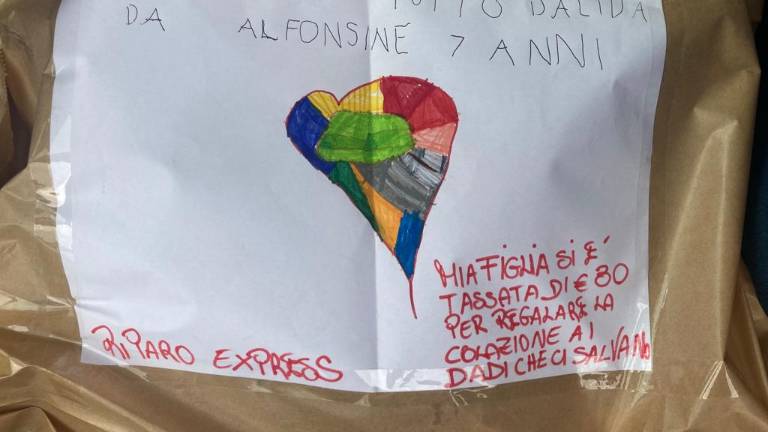 TUTTO DALIDA
DA ALFONSINE 7 ANNI
MIA FIGLIA SI É
TASSATA DI € 30
PER REGALARE LA
COLAZIONE AI
DADI CHE CI SALVANO
RIPARO EXPRESS